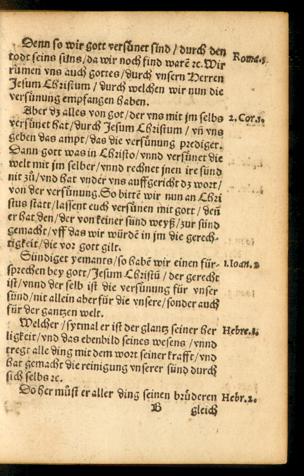 Denn so wir gott versünet sind / durch den
todt seins suns / da wir noch find warē ⁊c. Wir
rümen vns auch gottes / durch vnsern Herren
Jesum Christum / durch welchen wir nun die
versünung empfangen haben.
Roma. 5.
Aber dz alles von got / der vns mit jm selbs
versünet hat / durch Jesum Christum / vñ vns
geben das ampt / das die versünung prediget.
Dann gott was in Christo / vnnd versünet die
welt mit jm selber / vnnd rechnet jnen ire sünd
nit zů / vnd hat vnder vns auffgericht dz wort /
von der versünung. So bittē wir nun an Chri
stus statt / lassent euch versünen mit gott / deñ
er hat den / der von keiner sünd weyß / zur sünd
gemacht / vff das wir würdē in jm die gerech-
tigkeit / die vor gott gilt.
2. Cor. 5.
Sündiget yemants / so habē wir einen für-
sprechen bey gott / Jesum Christū / der gerecht
ist / vnnd der selb ist die versünung für vnser
sünd / nit allein aber für die vnsere / sonder auch
für der gantzen welt.
1. Ioan. 2
Welcher / sytmal er ist der glantz seiner her
ligkeit / vnd das ebenbild seines wesens / vnnd
tregt alle ding mit dem wort seiner krafft / vnd
hat gemacht die reinigung vnserer sünd durch
sich selbs ⁊c.
Hebre. 1.
Do her můst er aller ding seinen brüderen
Hebr. 2.
B
gleich